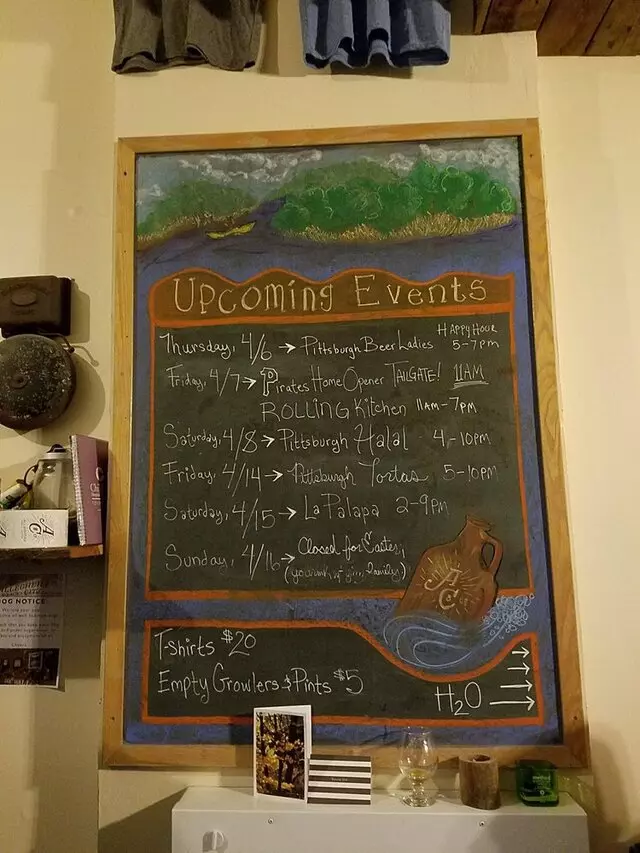 Upcoming Events
Thursday, 4/6 → Pittsburgh Beer Ladies HAPPY HOUR 5-7pm
Friday, 4/7 → Pirates Home Opener TAILGATE! 11AM
ROLLING Kitchen 11am-7pm
Saturday, 4/8 → Pittsburgh Halal 4-10pm
Friday, 4/14 → Pittsburgh Tortas 5-10pm
Saturday, 4/15 → La Palapa 2-9pm
Sunday, 4/16 → Closed for Easter;
AC
T-shirts $20
Empty Growlers & Pints $5
H2O
AC
DOG NOTICE
method